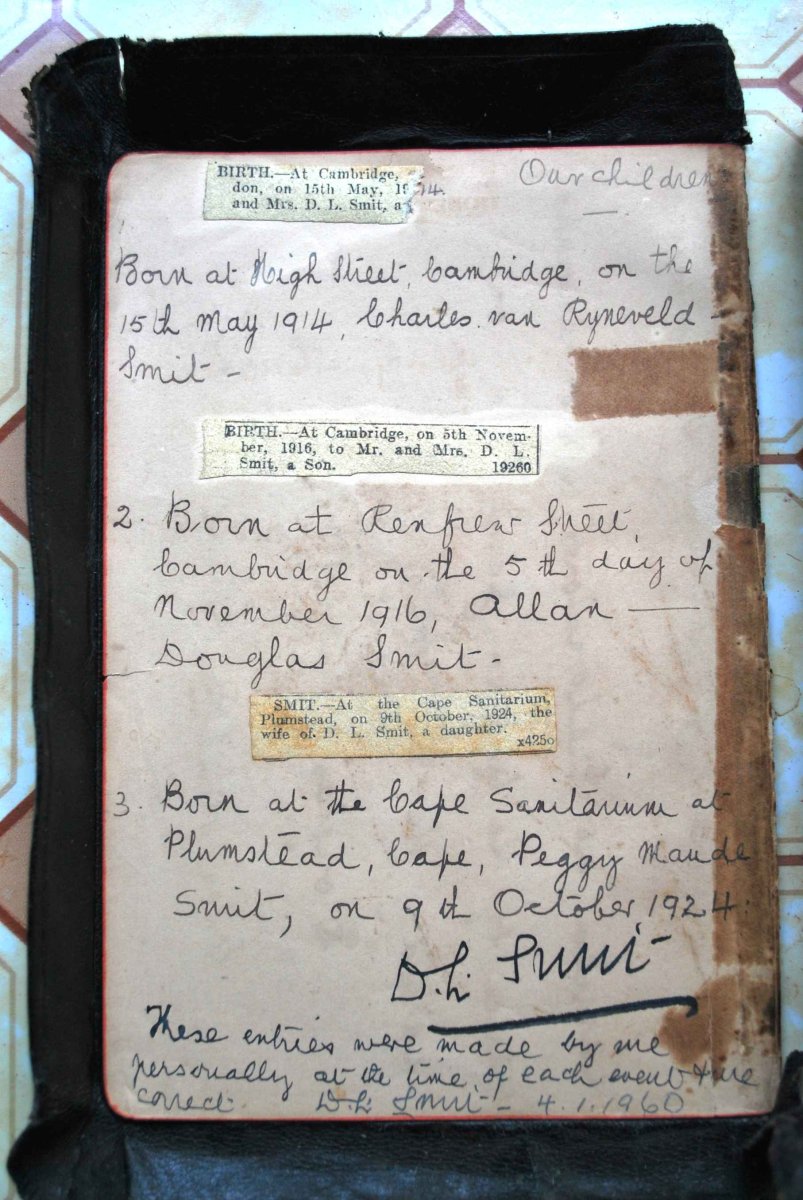 Our children
BIRTH.—At Cambridge,
don, on 15th May, 1914.
and Mrs. D. L. Smit, a
Born at High Street, Cambridge, on the
15th May 1914, Charles van Ryneveld
Smit -
BIRTH.—At Cambridge, on 5th Novem-
ber, 1916, to Mr. and Mrs. D. L.
Smit, a Son. 19260
2. Born at Renfrew Street,
Cambridge on the 5th day of
November 1916, Allan —
Douglas Smit -
SMIT.—At the Cape Sanitarium,
Plumstead, on 9th October, 1924, the
wife of D. L. Smit, a daughter.
x4250
3. Born at the Cape Sanitarium at
Plumstead, Cape, Peggy Maude
Smit, on 9th October, 1924.
D. L. Smit
These entries were made by me
personally at the time of each event & are
correct. D. L. Smit - 4.1.1960